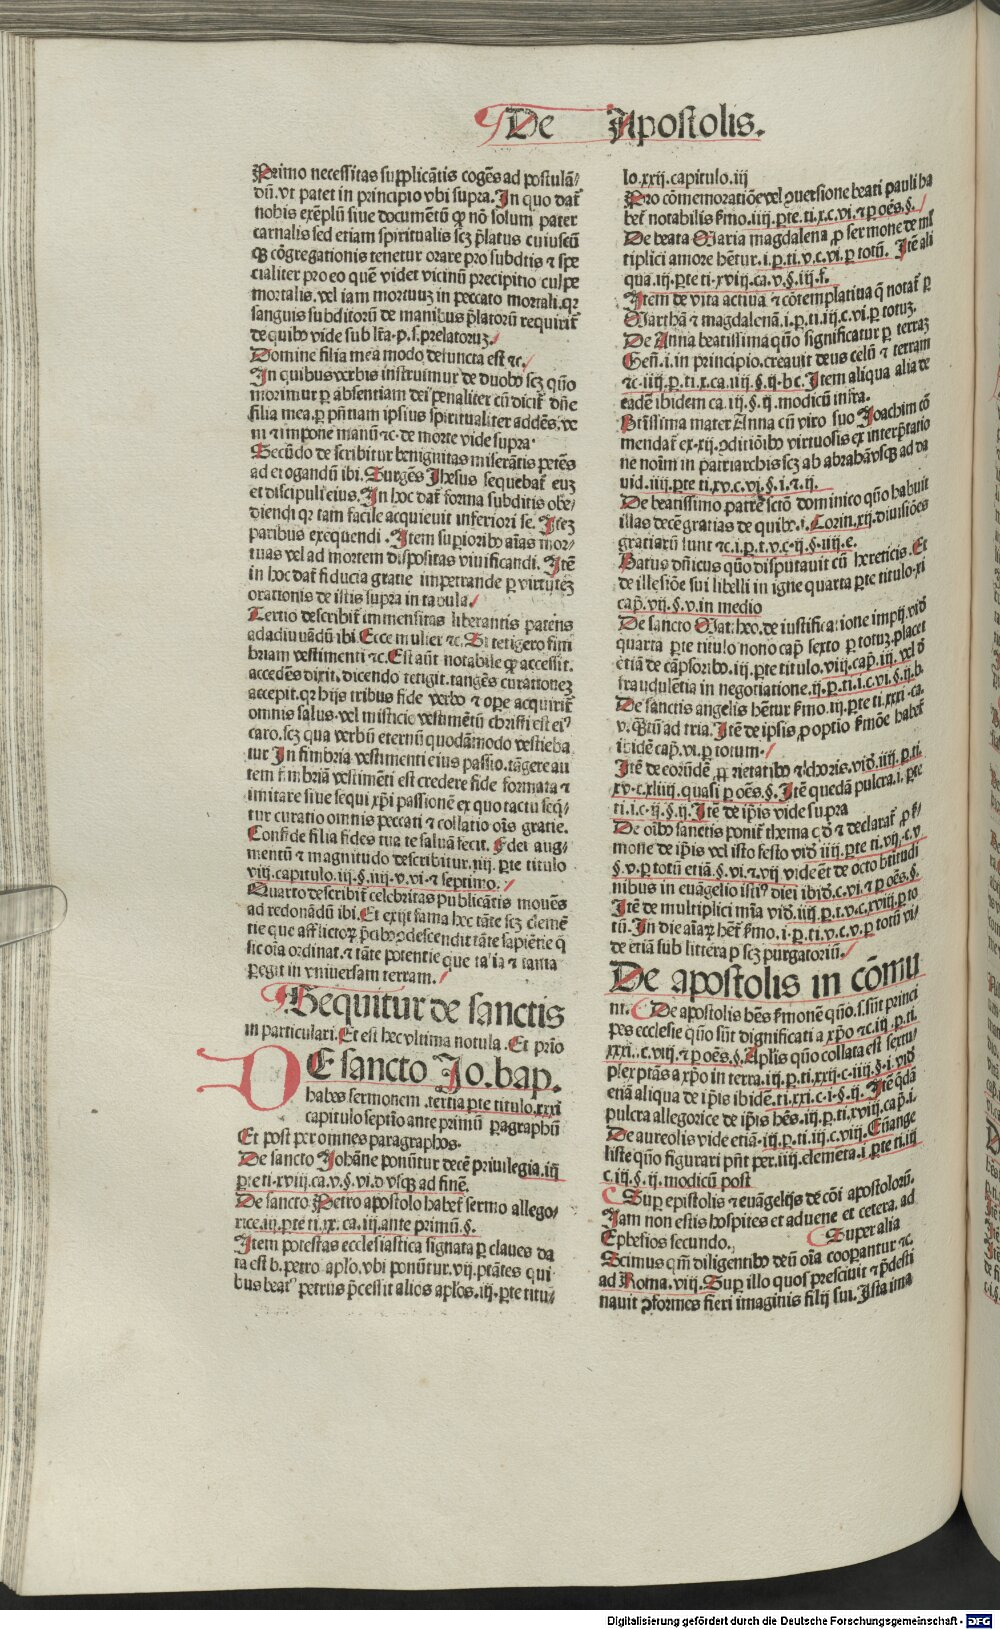 De Apostolis.
Primo necessitas supplicātis cogēs ad postulā/
dū. vt patet in principio vbi supra. In quo dat᷑
nobis exēplū siue documētū ꝙ nō solum pater
carnalis sed etiam spiritualis scꝫ p̄latus cuiuscū
ꝙ cōgregationis tenetur orare pro subditis ⁊ spe
cialiter pro eo quē videt vicinū precipitio culpe
mortalis. vel iam mortuuꝫ in peccato mortali. qꝛ
sanguis subditorū de manibus p̄latorū requirit᷑
de quibꝰ vide sub lr̄a. p. s. prelatoruꝫ.
Domine filia mea modo defuncta est ⁊c.
In quibus verbis instruimur de duobꝰ scꝫ quō
morimur ꝑ absentiam dei penaliter cū dicit᷑ dn̄e
filia mea. ꝑ pn̄tiam ipsius spiritualiter addēs. ve
ni ⁊ impone manū ⁊c. de morte vide supra.
Secūdo describitur benignitas miserātis petēs
ad erogandū ibi. Surgēs Jhesus sequebat᷑ euꝫ
et discipuli eius. In hoc dat᷑ forma subditis obe/
diendi qꝛ tam facile acquieuit inferiori se. Jtēꝫ
paribus exequendi. Item superioribꝰ aīas mor/
tuas vel ad mortem dispositas viuificandi. Itē
in hoc dat᷑ fiducia gratie impetrande ꝑ virtuteꝫ
orationis de istis supra in tabula.
Tertio describit᷑ immensitas liberantis patens
ad adiuuādū ibi. Ecce mulier ⁊c. Si tetigero fim
briam vestimenti ⁊c. Est aūt notabile ꝙ accessit.
accedēs dixit. dicendo tetigit. tangēs curationeꝫ
accepit. qꝛ hijs tribus fide verbo ⁊ oꝑe acquirit᷑
omnis salus. vel mistice vestimētū christi est eiꝰ
caro. scꝫ qua verbū eternū quodāmodo vestieba
tur In fimbria vestimenti eius passio. tāgere au
tem fimbriā vestimēti est credere fide formata ⁊
imitare siue sequi xp̄i passionē ex quo tactu seq̄/
tur curatio omnis peccati ⁊ collatio oīs gratie.
Confide filia fides tua te saluā fecit. Fidei aug/
mentū ⁊ magnitudo describitur. iiij. ꝑte titulo
viij. capitulo. iij. §. iiij. v. vi. ⁊ septimo.
Quarto describit᷑ celebritas publicātis mouēs
ad redonādū ibi. Et exijt fama hec tāte scꝫ clemē
tie que afflictorꝫ p̄cibꝰ ↄdescendit tāte sapiētie q̄
sic oīa ordinat. ⁊ tāte potentie que talia ⁊ tanta
ꝑegit in vniuersam terram.
Sequitur de sanctis
in particulari. Et est hec vltima notula. Et prīo
DE sancto Jo. bap.
habes sermonem. tertia ꝑte titulo. xxxi
capitulo septīo ante primū ꝑagraphū
Et post per omnes paragraphos.
De sancto Johāne ponūtur decē priuilegia. iij
ꝑte ti. xviij. ca. v. §. vi. d vsqꝫ ad finē.
De sancto Petro apostolo habet᷑ sermo allego/
rice. iij. ꝑte ti. ix. ca. iij. ante primū. §.
Item potestas ecclesiastica signata ꝑ claues da
ta est b. petro aplō. vbi ponūtur. vij. ptātes qui
bus beatꝰ petrus p̄cessit alios aplōs. iij. ꝑte titu/
lo. xxij. capitulo. iij
Pro cōmemoratiōe vel ↄuersione beati pauli ha
bet᷑ notabilis s̄mo. iiij. ꝑte. ti. x. c. vi. ⁊ ꝑ oēs. §.
De beata Maria magdalena, ꝑ sermone de ml̄
tiplici amore hētur. i. ꝑ. ti. v. c. vi. ꝑ totū. Itē ali
qua. iij. ꝑte ti. xviij. ca. v. §. iij. f.
Item de vita actiua ⁊ cōtemplatiua q̄ notat᷑ ꝑ
Marthā ⁊ magdalenā. i. ꝑ. ti. iij. c. vi. ꝑ totuꝫ.
De Anna beatissima quō significatur ꝑ terraꝫ
Geñ. i. in principio. creauit deus celū ⁊ terram
⁊c. iiij. ꝑ. ti. x. ca. iiij. §. ij. b c. Item aliqua alia de
eadē ibidem ca. iij. §. ij. modicū infra.
Btīssima mater Anna cū viro suo Joachim cō
mendat᷑ ex. xij. ↄditiōibꝰ virtuosis ex interp̄tatio
ne noīm in patriarchis scꝫ ab abrahā vsqꝫ ad da
uid. iiij. ꝑte ti. xv. c. vi. §. i. ⁊. ij.
De beatissimo patre sctō dominico quō habuit
illas decē gratias de quibꝰ. i. Corin. xij. diuisiōes
gratiarū sunt ⁊c. i. ꝑ. t. v. c. ij. §. iiij. e.
Batus dn̄icus quō disputauit cū hereticis. Et
de illesiōe sui libelli in igne quarta ꝑte titulo. xi
cap̄. vij. §. v. in medio
De sancto Matheo. de iustificatione impij. vid̄
quarta ꝑte titulo nono cap̄ sexto ꝑ totuꝫ. placet
etiā de cāpsoribꝰ. iij. ꝑte titulo. viij. cap̄. iij. vel d̄
fraudulētia in negotiatione. ij. ꝑ. ti. i. c. vi. §. ij. b.
De sanctis angelis hētur s̄mo. iij. ꝑte ti. xxxi. ca.
v. q̄tū ad tria. Itē de ipsis ꝓ optio s̄mōe habet᷑
ibidē cap̄. vi. ꝑ totum.
Itē de eorūdē ꝓprietatibꝰ ⁊ choris. vid̄. iiij. ꝑ. ti.
xv. c. xliij. quasi ꝑ oēs. §. Itē quedā pulcra. i. ꝑte
ti. i. c. ij. §. ij. Itē de ip̄is vide supra
De oībꝰ sanctis ponit᷑ thema c̄ d̄ ⁊ declarat᷑, ꝓ s̄/
mone de ip̄is vel isto festo vid̄ iiij. ꝑte ti. vij. c. v
§. v. ꝑ totū etiā. §. vi. ⁊. vij vide ēt de octo btītudi
nibus in euāgelio istiꝰ diei ibid̄. c. vi. ⁊ ꝑ oēs. §.
Itē de multiplici mīa vid̄. iiij. ꝑ. t. v. c. xviij. ꝑ to
tū. In die aīaꝝ het᷑ s̄mo. i. ꝑ. ti. v. c. v. ꝑ totū vi/
de etiā sub littera p scꝫ purgatoriū.
De apostolis in cōmu
ni. De apostolis hēs s̄monē quō. s. sūt princi
pes ecclesie quō sūt dignificati a xp̄o ⁊c. iij. ꝑ. ti.
xxxi. c. viij. ⁊ ꝑ oēs. §. Aplis quō collata est sextu/
plex ptās a xp̄o in terra. iij. ꝑ. ti. xxij. c. iiij. §. i. vid̄
etiā aliqua de ip̄is ibidē. ti. xxi. c. i. §. ij. Itē q̄dā
pulcra allegorice de ip̄is hēs. iij. ꝑ. ti. xviij. cap̄. i.
De aureolis vide etiā. iij. ꝑ. ti. iij. c. viij. Euange
liste quō figurari pn̄t per. iiij. elemēta. i. ꝑte ti. iij
c. iij. §. ij. modicū post
Suꝑ epistolis ⁊ euāgelijs de cōi apostolorū.
Jam non estis hospites et aduene et cetera. ad
Ephesios secundo. Super alia
Scimus qm̄ diligentibꝰ deū oīa cooꝑantur ⁊c.
ad Roma. viij. Suꝑ illo quos presciuit ⁊ p̄desti
nauit ↄformes fieri imaginis filij sui. Ista ima
Digitalisierung gefördert durch die Deutsche Forschungsgemeinschaft - DFG